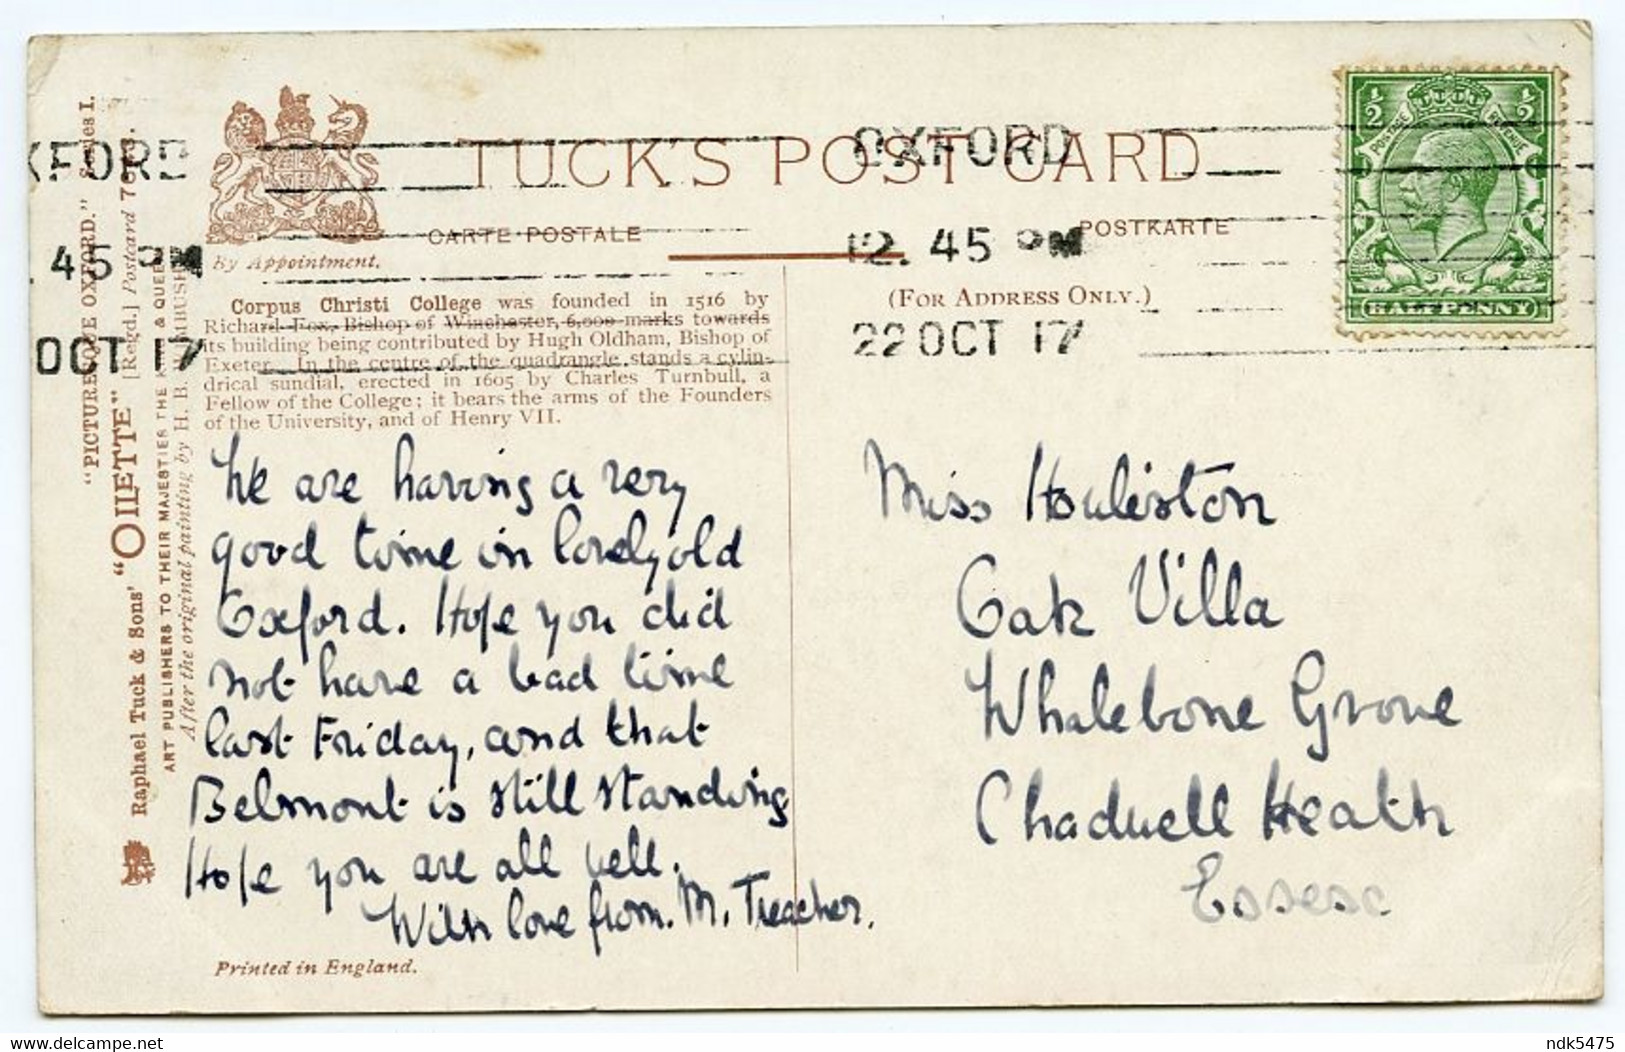 TUCK'S POST CARD
CARTE POSTALE
POSTKARTE
By Appointment.
(FOR ADDRESS ONLY.)
OXFORD
12. 45 PM
22 OCT 17
XFORD
. 45 PM
OCT 17
½ ½
POSTAGE REVENUE
HALFPENNY
"PICTURESQUE OXFORD." Series I.
Raphael Tuck & Sons' "OILETTE" [Regd.] Postcard
ART PUBLISHERS TO THEIR MAJESTIES THE KING & QUEEN
After the original painting by H. B. WIMBUSH.
Corpus Christi College was founded in 1516 by
Richard Fox, Bishop of Winchester, 6,000 marks towards
its building being contributed by Hugh Oldham, Bishop of
Exeter. In the centre of the quadrangle stands a cylin-
drical sundial, erected in 1605 by Charles Turnbull, a
Fellow of the College; it bears the arms of the Founders
of the University, and of Henry VII.
We are having a very
good time in lovely old
Oxford. Hope you did
not have a bad time
last Friday, and that
Belmont is still standing
Hope you are all well.
With love from. M. Treacher.
Miss Houliston
Oak Villa
Whalebone Grove
Chadwell Heath
Essex
Printed in England.
www.delcampe.net
ndk5475